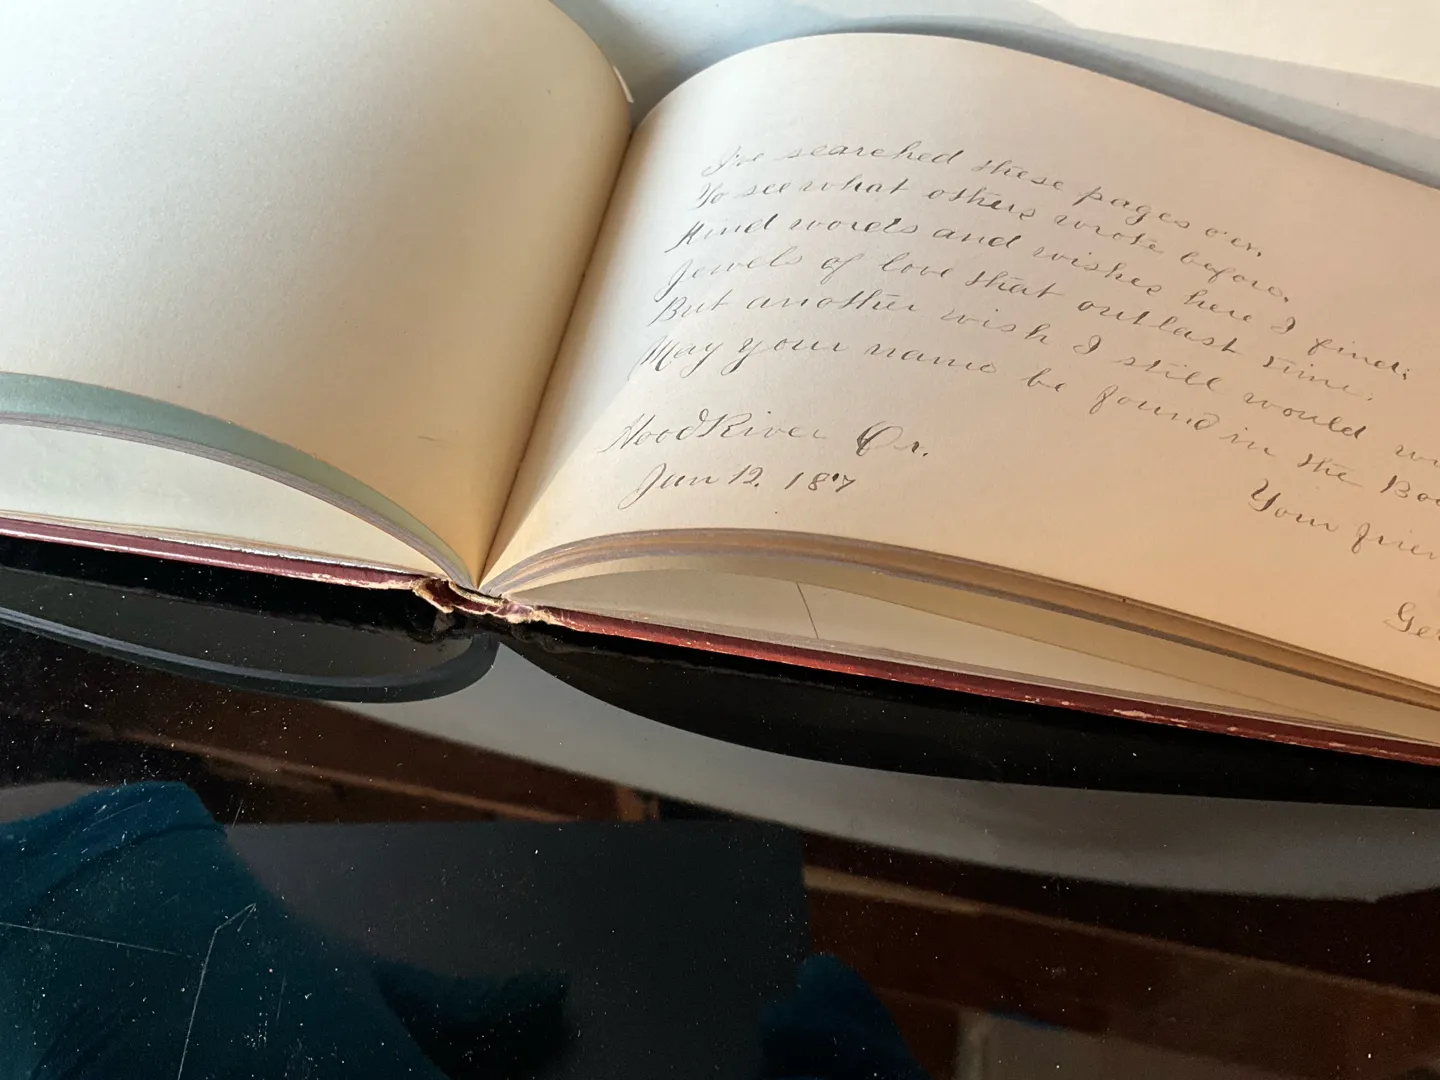 I've searched these pages o'er,
To see what others wrote before.
Kind words and wishes here I find;
Jewels of love that outlast time.
But another wish I still would
May your name be found in the
Hood River Or.
Jan 12. 187
Your